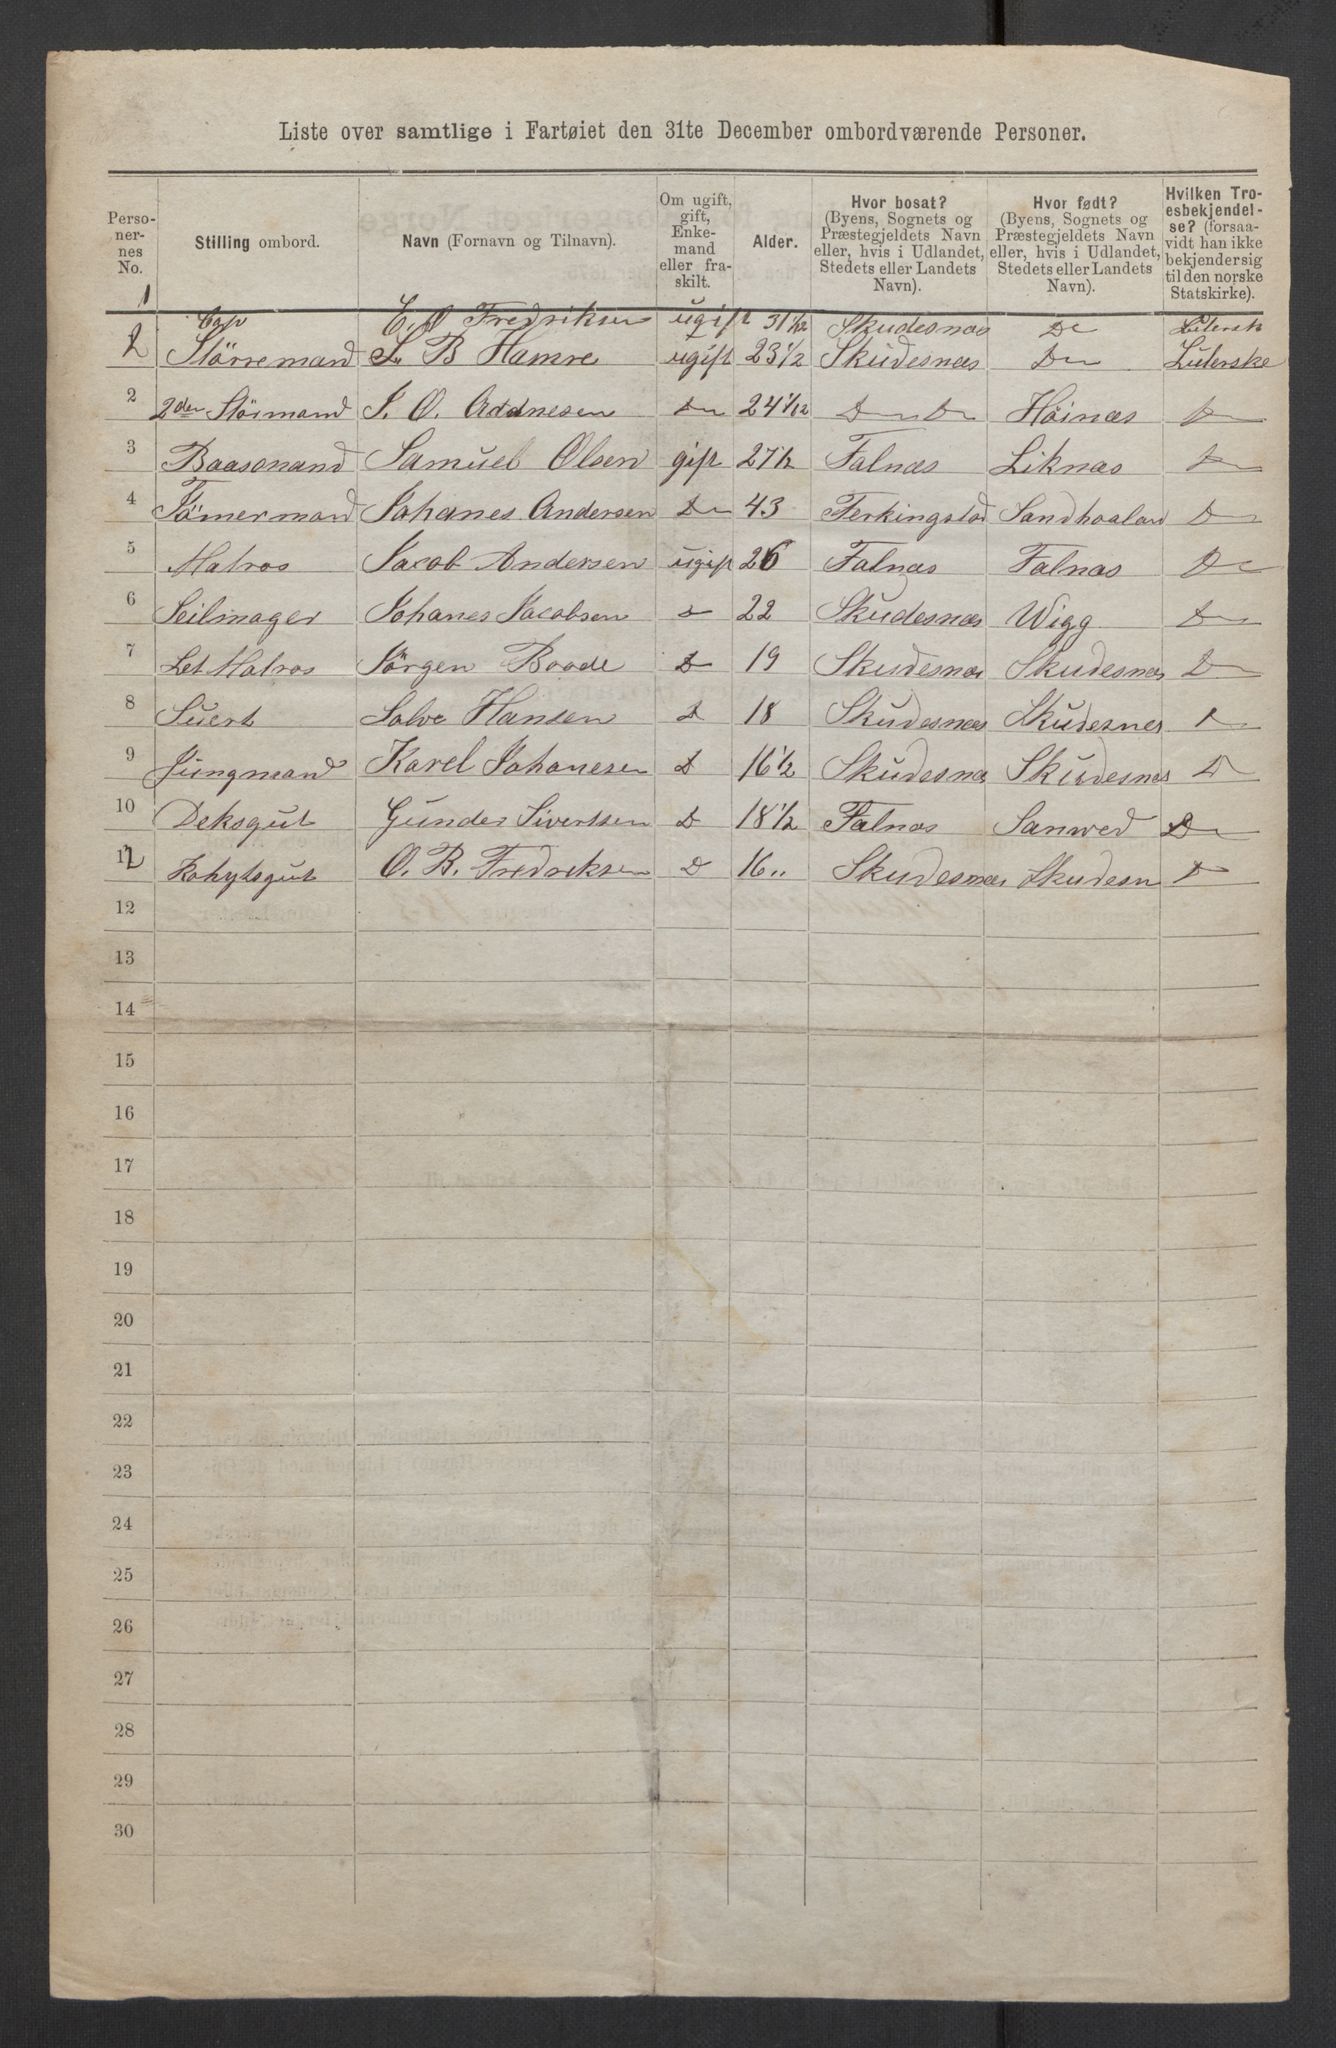 Liste over samtlige i Fartøiet den 31te December ombordværende Personer.
Perso-
ner-
nes
No.
Stilling ombord.
Navn (Fornavn og Tilnavn).
Om ugift,
gift,
Enke-
mand
eller fra-
skilt.
Alder.
Hvor bosat?
(Byens, Sognets og
Præstegjeldets Navn
eller, hvis i Udlandet,
Stedets eller Landets
Navn).
Hvor født?
(Byens, Sognets og
Præstegjeldets Navn
eller, hvis i Udlandet,
Stedets eller Landets
Navn).
Hvilken Tro-
esbekjendel-
se? (forsaa-
vidt han ikke
bekjender sig
til den norske
Statskirke).
1 Cap E. O Fredriksen ugift 31 1/12 Skudesnæs Do Litersk
2 Störremand L. B Hamre ugift 23 1/2 Skudesnæs Do Luterske
2 2den Störmand J. O. Addnesen Do 24 1/12 Do Do Höinæs Do
3 Baasmand Samuel Olsen gift 27 1/2 Falnæs Liknæs Do
4 Tömermand Johanes Andersen Do 43 Ferkingstad Sandhaaland Do
5 Matros Jacob Andersen ugift 26 Falnæs Falnæs Do
6 Seilmager Johanes Jacobsen Do 22 Skudesnæs Wigg Do
7 Let Matros Jörgen Baade D 19 Skudesnæs Skudesnæs D
8 Stuert Salve Hansen D 18 Skudesnæs Skudesnes D
9 Jungmand Karel Johanesen D 16 1/2 Skudesnæs Skudesnæs D
10 Deksgut Gunder Sivertsen D 18 1/2 Falnæs Sanwed Do
12 Kahytsgut O. B. Fredriksen D 16 " Skudesnæs Skudesn D
12
13
14
15
16
17
18
19
20
21
22
23
24
25
26
27
28
29
30